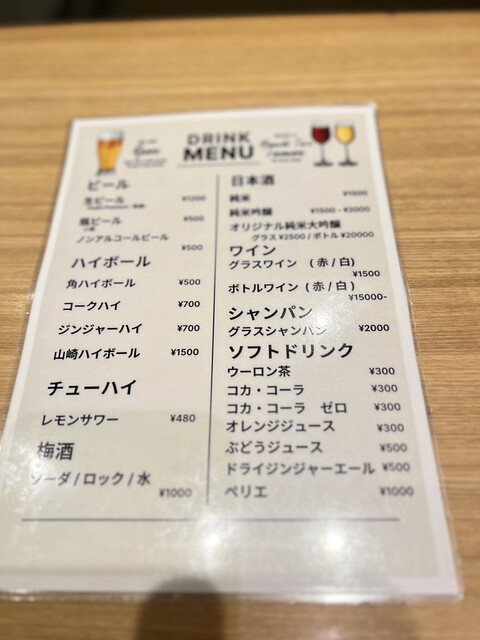 DRINK
MENU
ビール
生ビール
¥1200
瓶ビール ¥500
ノンアルコールビール
¥500
ハイボール
角ハイボール ¥500
コークハイ ¥700
ジンジャーハイ ¥700
山崎ハイボール ¥1500
チューハイ
レモンサワー ¥480
梅酒
ソーダ / ロック / 水
¥1000
日本酒
純米 ¥1500
純米吟醸 ¥1500 - ¥2000
オリジナル純米大吟醸
グラス ¥2500 / ボトル ¥20000
ワイン
グラスワイン (赤 / 白)
¥1500
ボトルワイン (赤 / 白)
¥15000-
シャンパン
グラスシャンパン ¥2000
ソフトドリンク
ウーロン茶 ¥300
コカ・コーラ ¥300
コカ・コーラ ゼロ ¥300
オレンジジュース ¥300
ぶどうジュース ¥500
ドライジンジャーエール ¥500
ペリエ ¥1000